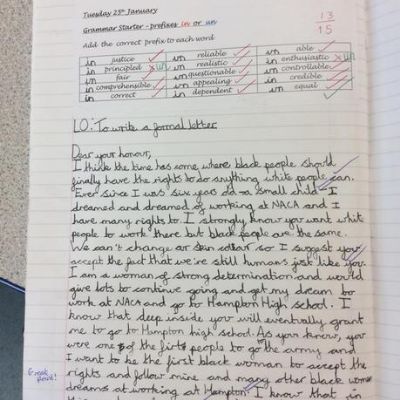 Tuesday 25th January
Grammar Starter - prefixes in or un
13
15
Add the correct prefix to each word
in justice un reliable un able
in principled un un realistic in enthusiastic un
un fair un questionable un controllable
in comprehensible un appealing in credible
in correct in dependent un equal
LO: To write a formal letter
Dear your honour,
I think the time has come where black people should
finally have the rights to do anything white people can.
Ever since I was six years old - a small child - I
dreamed and dreamed of working at NACA and I
have many rights to. I strongly know you want white
people to work there but black people are the same.
We can't change ar skin collar so I suggest you
accept the fact that we're still humans just like you.
I am a woman of strong determination and would
give lots to continue going and get my dream to
work at NACA and go to Hampton High school. I
know that deep inside you will eventually grant
me to go to Hampton high school. As you know, you
were one of the first people to go the army and
I want to be the first black woman to accept the
rights and follow mine and many other black woms
dreams at working at Hampton. I know that in
Great point!